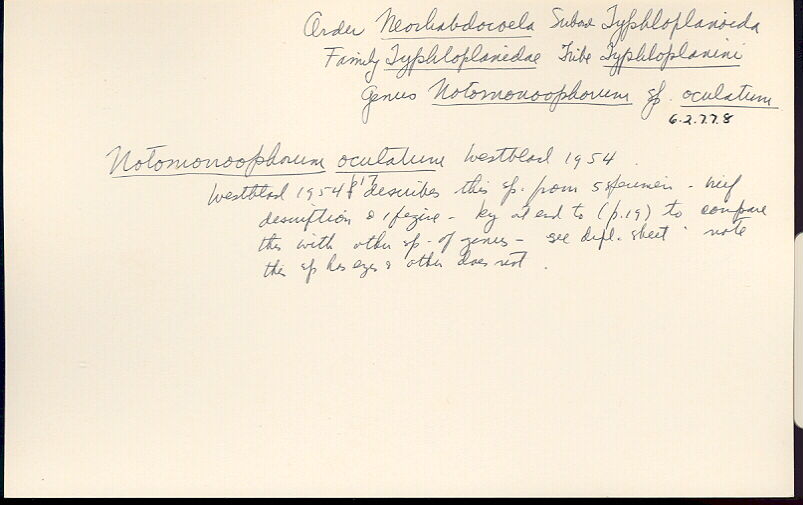 Order Neorhabdocoela Subord Typhloplanoida
Family Typhloplanidae Tribe Typhloplanini
Genus Notomonoophorum sp. oculatum
6.2.7.7.8
Notomonoophorum oculatum Westblad 1954.
Westblad 1954 p17 describes this sp. from 5 specimen - brief
description & 1 figure - key at end to (p.19) to compare
this with other sp. of genus - see dupl. sheet note
this sp has eyes & other does not.